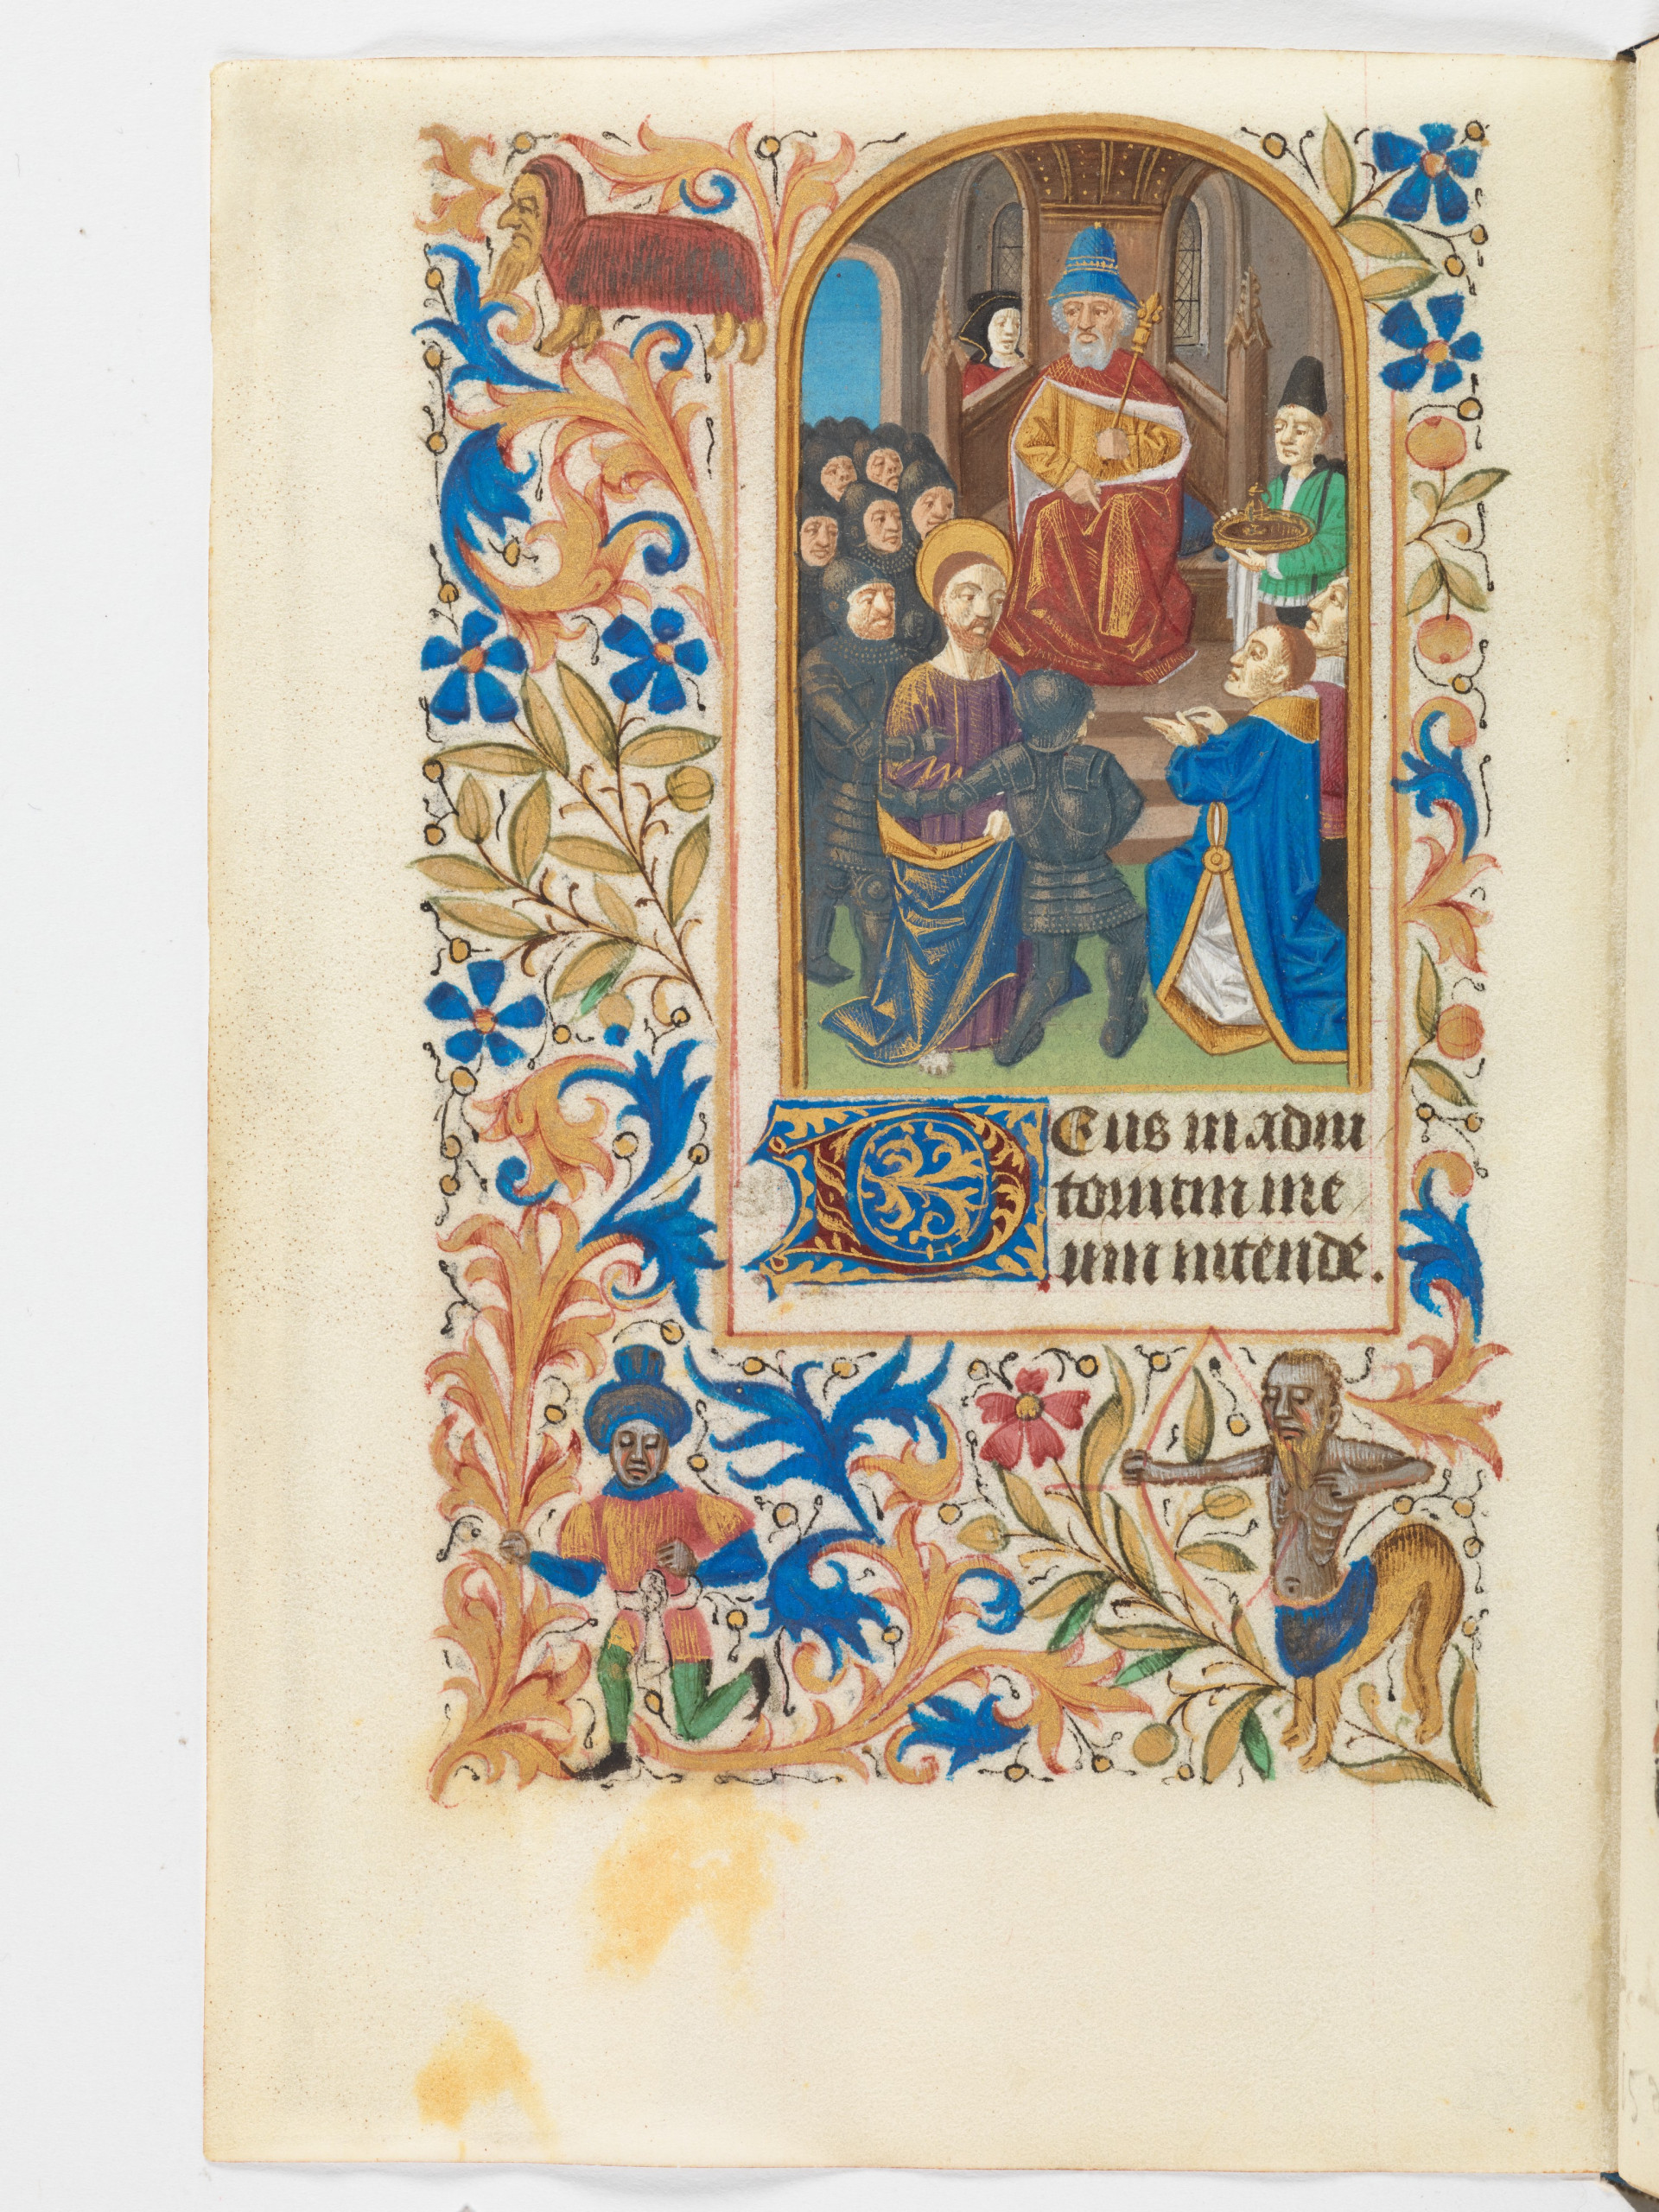 DEus in adiu
torium me
um intende.